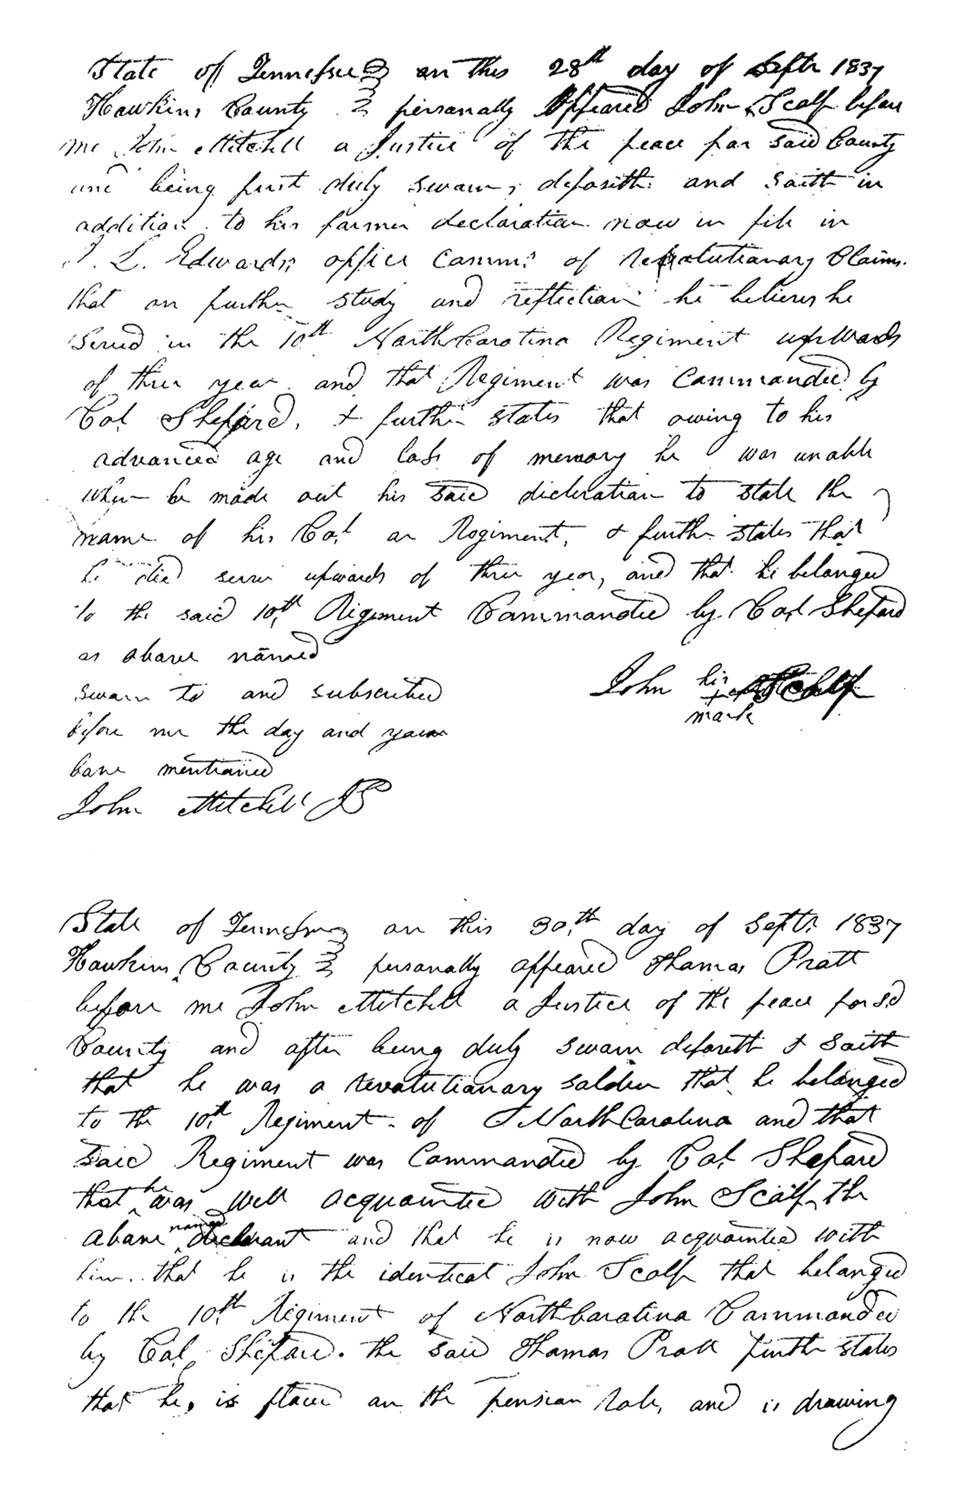 State of Tennessee } on this 28th day of Septr 1837
Hawkins County } personally Appeared John Scalf before
me John Mitchell a Justice of the peace for said County
and being first duly sworn, deposith and saith in
addition to his former declaration now in file in
J. L. Edwards, office Comms. of revolutionary Claims.
that on further study and reflection he believes he
served in the 10th North Carolina Regiment upwards
of three year and that Regiment was Commanded by
Col Shepard, & further states that owing to his
advanced age and loss of memory he was unable
when he made out his said declaration to state the
name of his Col. or Regiment, & further states that
he did serve upwards of three year, and that he belonged
to the said 10th Regiment Commanded by Col Shepard
as above named
sworn to and subscribed John his + mark Scalf
before me the day and year
bove mentioned
John Mitchell JP
State of Tennessee } on this 30th day of Septr 1837
Hawkins County } personally appeared Thomas Pratt
before me John Mitchell a Justice of the peace for sd
County and after being duly sworn deposeth & saith
that he was a revolutionary soldier that he belonged
to the 10th Regiment of North Carolina and that
said Regiment was Commanded by Col. Shepard
that he was well acquainted with John Scalf the
above named declarant and that he is now acquainted with
him. that he is the identical John Scalf that belonged
to the 10th Regiment of North Carolina Commanded
by Col Shepard. the said Thomas Pratt further states
that he, is placed on the pension role, and is drawing